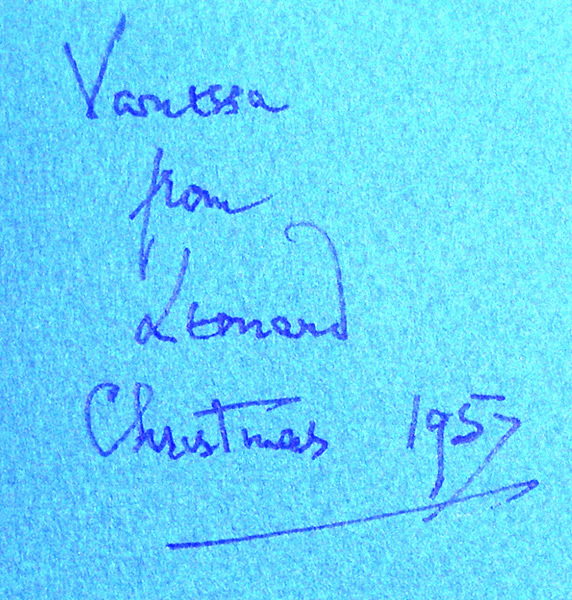 Vanessa
from
Leonard
Christmas 1957